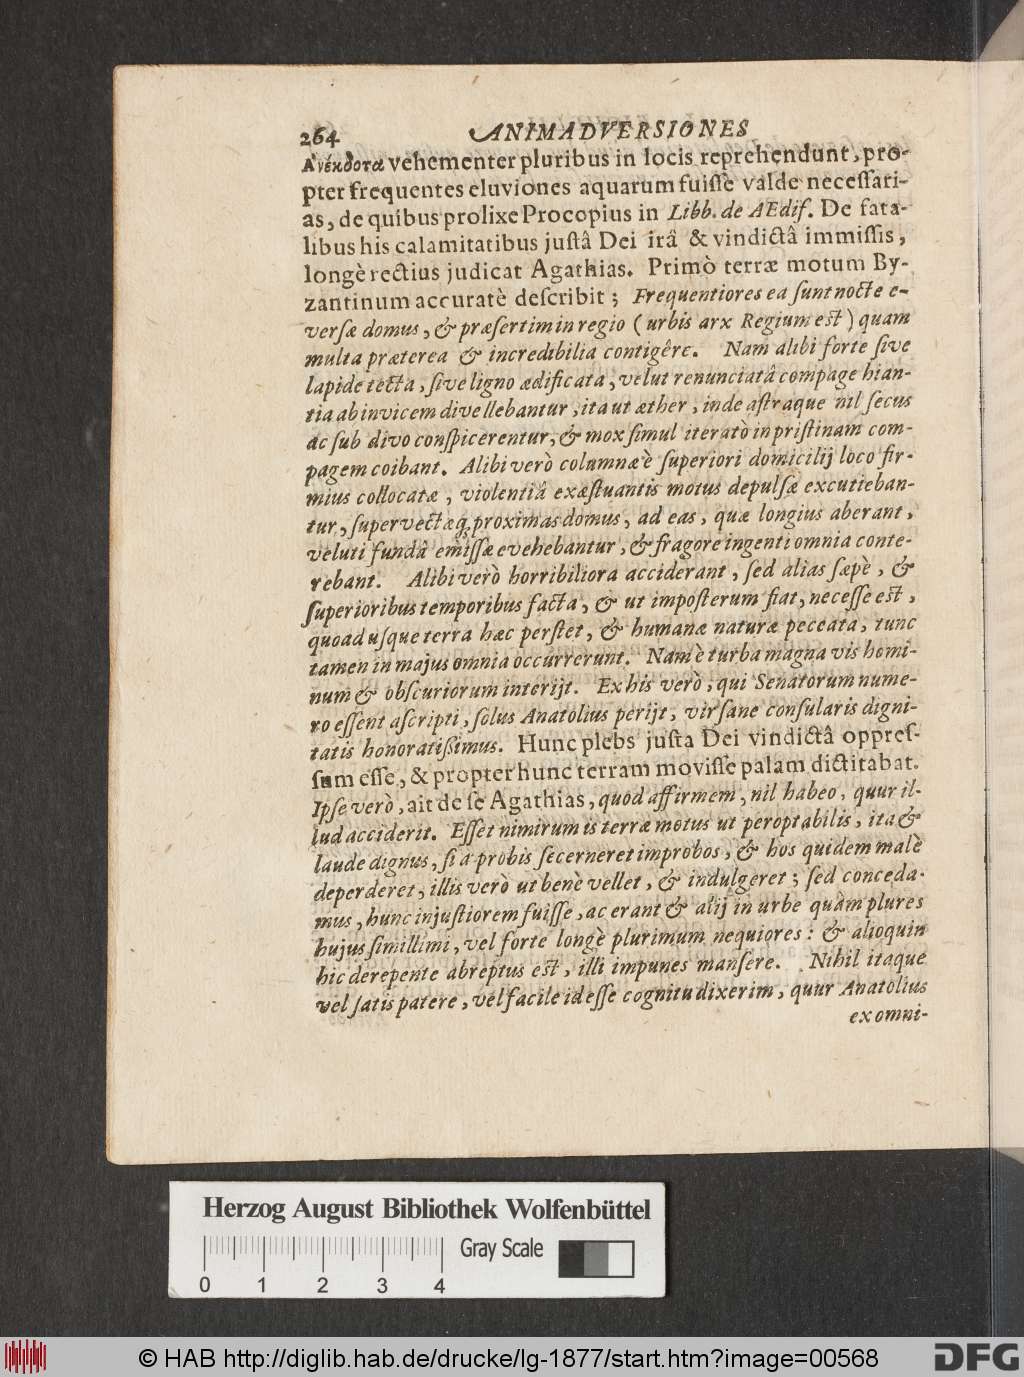 264 ANIMADVERSIONES
Ἀνέκδοτα vehementer pluribus in locis reprehendunt, pro-
pter frequentes eluviones aquarum fuisſè valde necesſari-
as, de quibus prolixe Procopius in Libb. de AEdif. De fata-
libus his calamitatibus juſtâ Dei irâ & vindictâ immisſis,
longè rectius judicat Agathias. Primò terræ motum By-
zantinum accuratè deſcribit; Frequentiores ea ſunt nocte e-
verſæ domus, & præſertim in regio (urbis arx Regium eſt) quam
multa præterea & incredibilia contigêre. Nam alibi forte ſive
lapide tecta, ſive ligno ædificata, velut renunciatâ compage hian-
tia ab invicem divellebantur, ita ut æther, inde aſtraque nil ſecus
ac ſub divo conſpicerentur, & mox ſimul iteratò in priſtinam com-
pagem coibant. Alibi verò columnæ è ſuperiori domicilij loco fir-
mius collocatæ, violentiâ exæſtuantis motus depulſæ excutieban-
tur, ſupervectæq; proximas domus, ad eas, quæ longius aberant,
veluti fundâ emiſſæ evehebantur, & fragore ingenti omnia conte-
rebant. Alibi verò horribiliora acciderant, ſed alias ſæpè, &
ſuperioribus temporibus facta, & ut impoſterum fiat, neceſſe eſt,
quoad uſque terra hæc perſtet, & humanæ naturæ peccata, tunc
tamen in majus omnia occurrerunt. Nam è turba magna vis homi-
num & obſcuriorum interijt. Ex his verò, qui Senatorum nume-
ro eſſent aſcripti, ſolus Anatolius perijt, vir ſane conſularis digni-
tatis honoratißimus. Hunc plebs juſta Dei vindictâ oppreſ-
ſum eſſe, & propter hunc terram moviſſe palam dictitabat.
Ipſe verò, ait de ſe Agathias, quod affirmem, nil habeo, quur il-
lud acciderit. Eſſet nimirum is terræ motus ut peroptabilis, ita &
laude dignus, ſi à probis ſecerneret improbos, & hos quidem malè
deperderet, illis verò ut benè vellet, & indulgeret; ſed conceda-
mus, hunc injuſtiorem fuiſſe, ac erant & alij in urbe quàm plures
hujus ſimillimi, vel forte longè plurimum nequiores: & alioquin
hic derepente abreptus eſt, illi impunes manſere. Nihil itaque
vel ſatis patere, vel facile id eſſe cognitu dixerim, quur Anatolius
ex omni-
Herzog August Bibliothek Wolfenbüttel
Gray Scale
0 1 2 3 4
© HAB http://diglib.hab.de/drucke/lg-1877/start.htm?image=00568
DFG